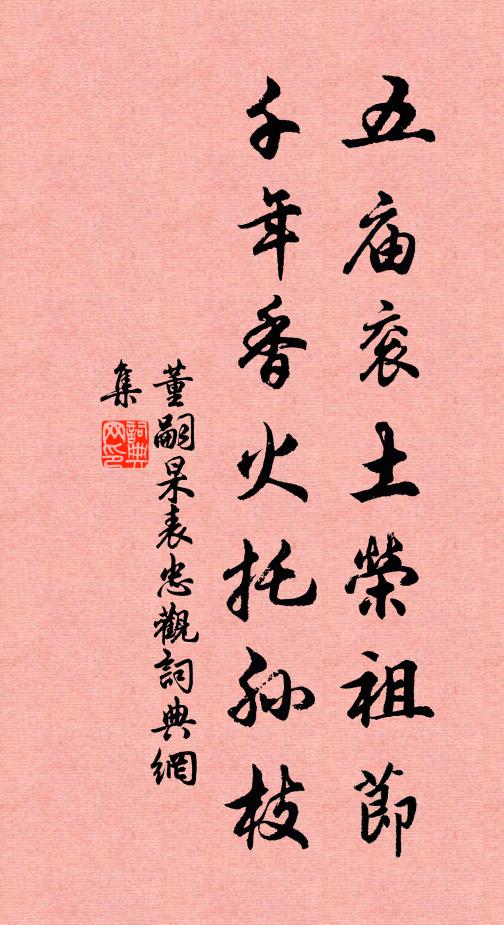 五庙衮土荣祖節
千年香火托孙枝
董嗣杲表忠觀詞典網
集
詞典网印